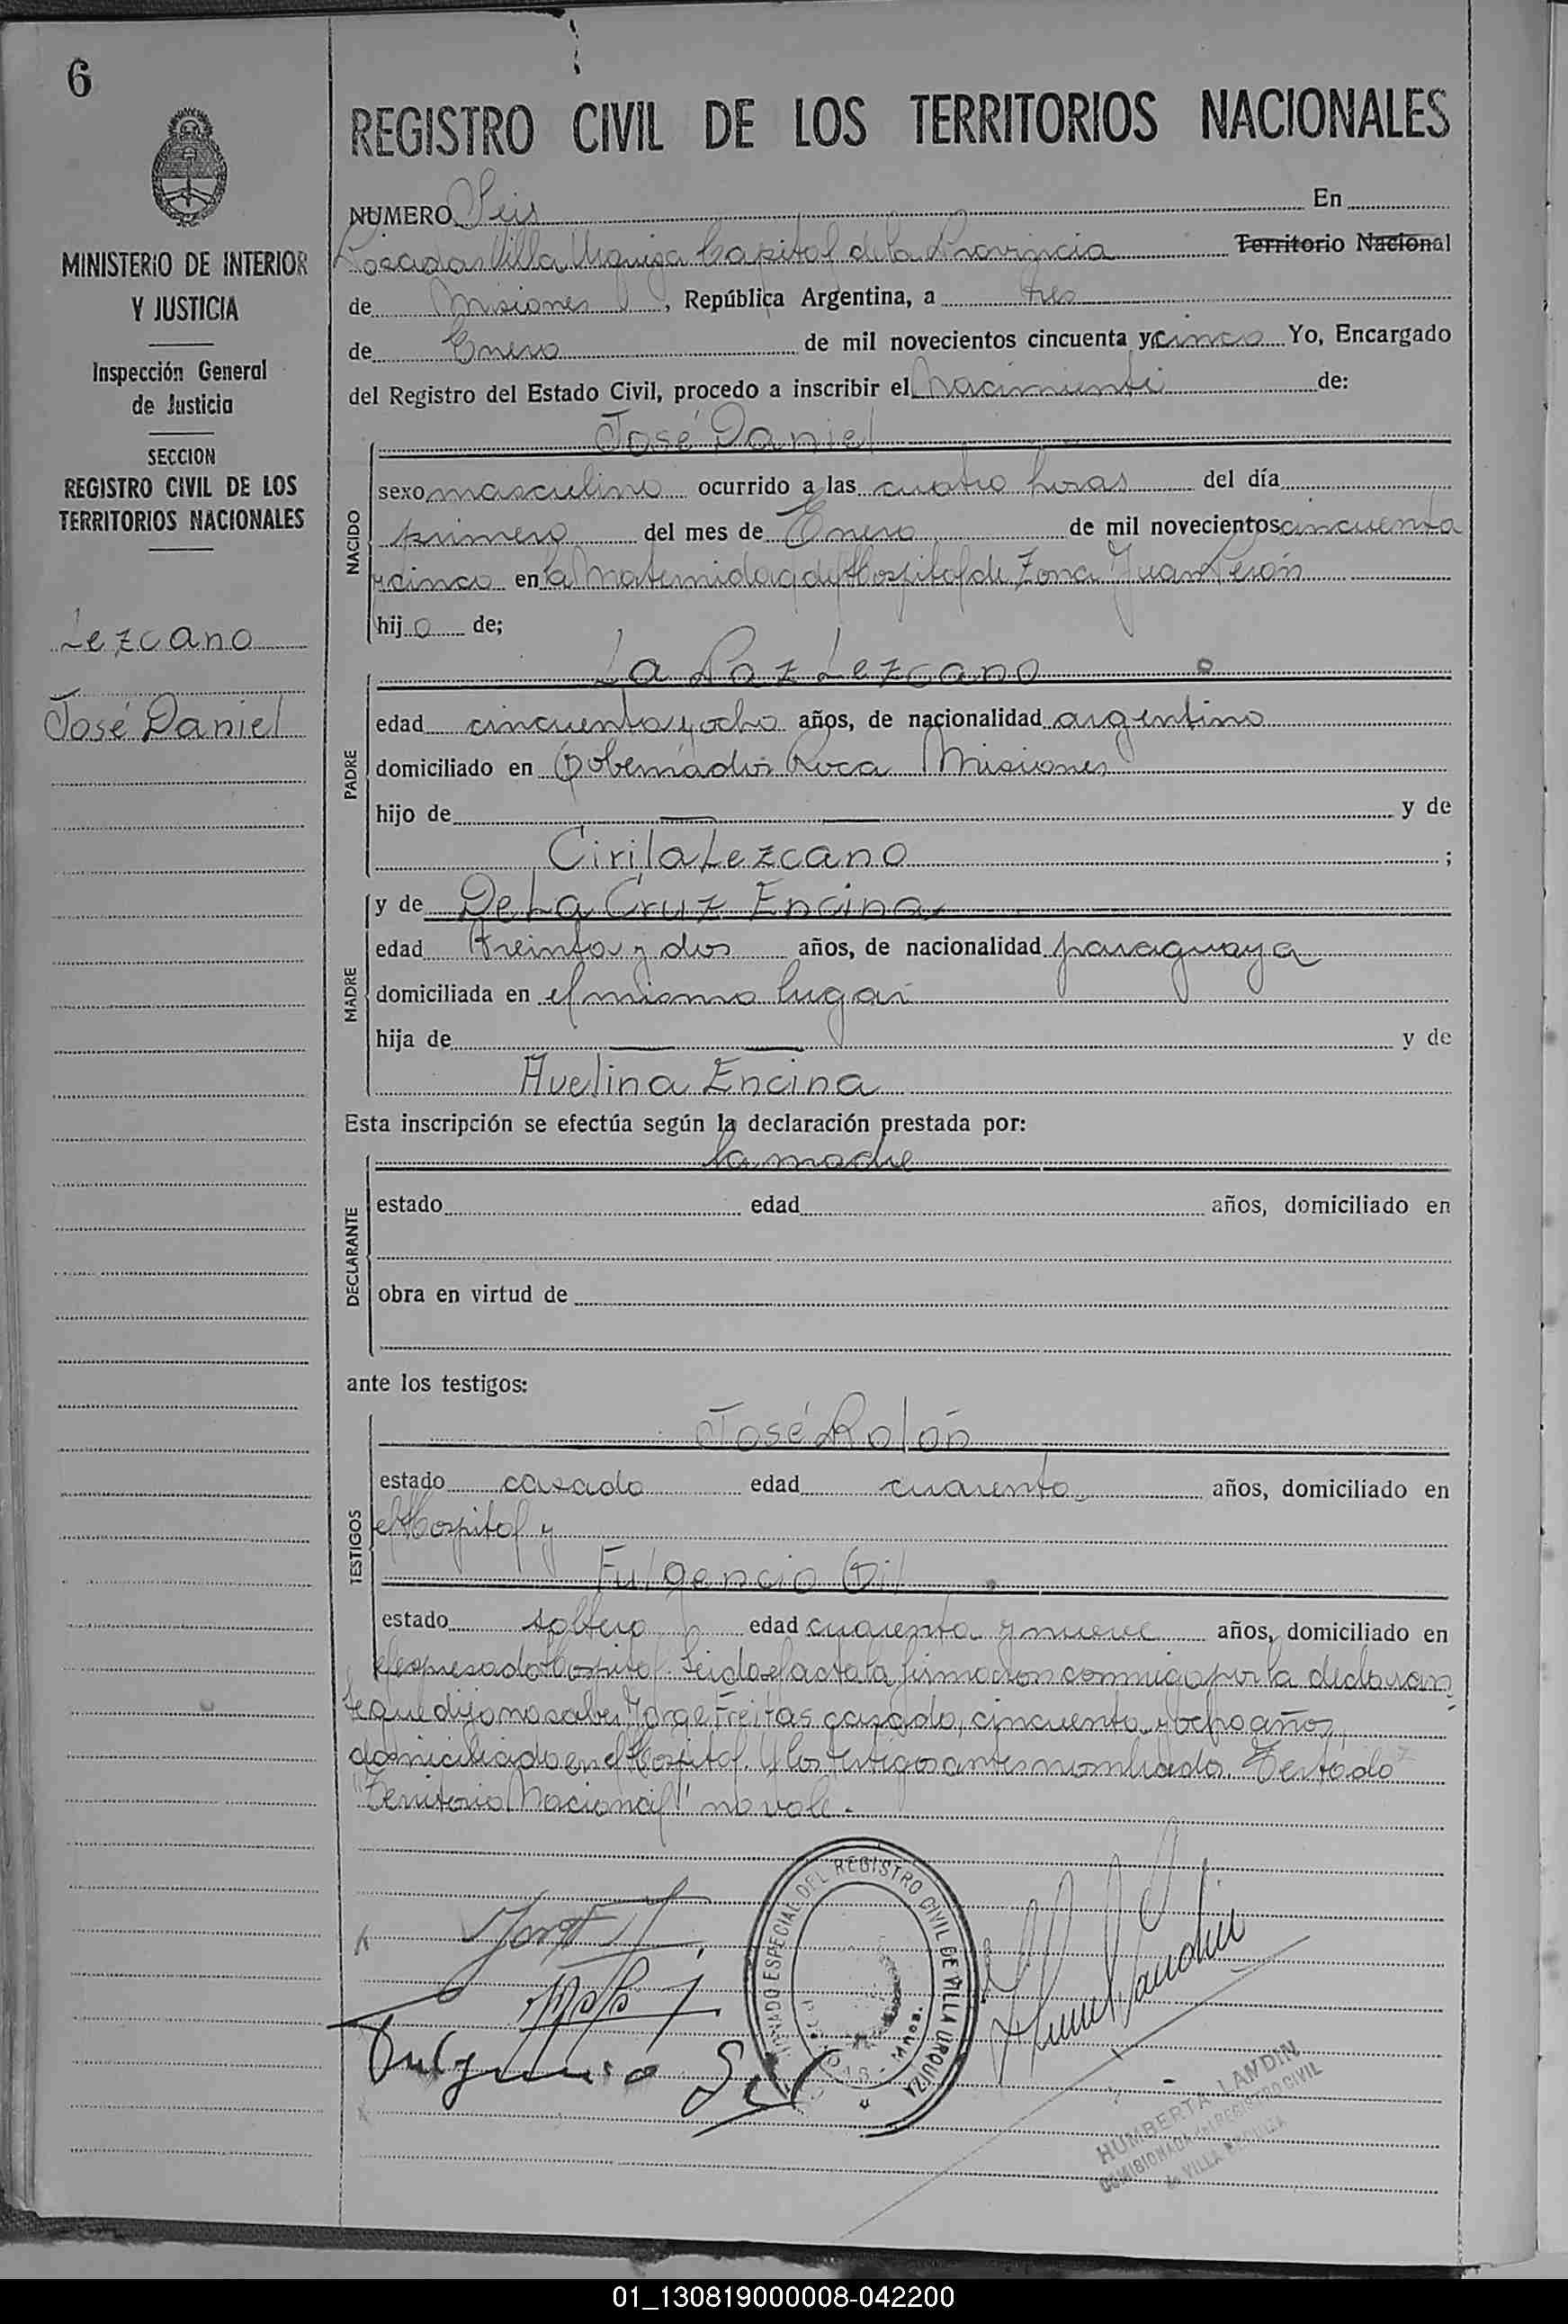 6
MINISTERIO DE INTERIOR
Y JUSTICIA
Inspección General
de Justicia
SECCION
REGISTRO CIVIL DE LOS
TERRITORIOS NACIONALES
Lezcano
José Daniel
REGISTRO CIVIL DE LOS TERRITORIOS NACIONALES
NUMERO Seis En
Posadas Villa Urquiza Capital de la Provincia Territorio Nacional
de Misiones, República Argentina, a tres
de Enero de mil novecientos cincuenta y cinco Yo, Encargado
del Registro del Estado Civil, procedo a inscribir el Nacimiento de:
José Daniel
NACIDO
sexo masculino ocurrido a las cuatro horas del día
primero del mes de Enero de mil novecientos cincuenta
y cinco en la Maternidad del Hospital de Zona Juan Perón
hijo de;
La Paz Lezcano
PADRE
edad cincuenta y ocho años, de nacionalidad argentino
domiciliado en Gobernador Roca Misiones
hijo de — — y de
Cirila Lezcano ;
y de De La Cruz Encina
MADRE
edad treinta y dos años, de nacionalidad paraguaya
domiciliada en el mismo lugar
hija de — — y de
Avelina Encina
Esta inscripción se efectúa según la declaración prestada por:
la madre
DECLARANTE
estado edad años, domiciliado en
obra en virtud de
ante los testigos:
José Rolón
TESTIGOS
estado casado edad cuarenta años, domiciliado en
el Hospital y
Fulgencio Gil
estado soltero edad cuarenta y nueve años, domiciliado en
el expresado Hospital. Leida el acta la firmaron conmigo por la declaran
te que dijo no saber Jorge Freitas casado, cincuenta y ocho años,
domiciliado en el Hospital. Y los testigos antes nombrados. Testado
"Territorio Nacional" no vale.
Fulgencio Gil
ESPECIAL DEL REGISTRO CIVIL DE VILLA URQUIZA
HUMBERTA LANDIN
COMISIONADA del REGISTRO CIVIL
de VILLA URQUIZA
01_130819000008-042200